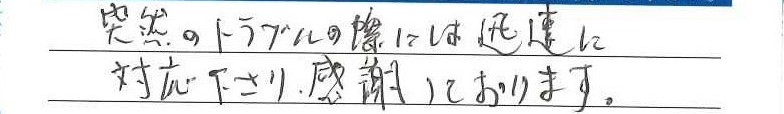 突然のトラブルの際には迅速に
対応下さり、感謝しております。